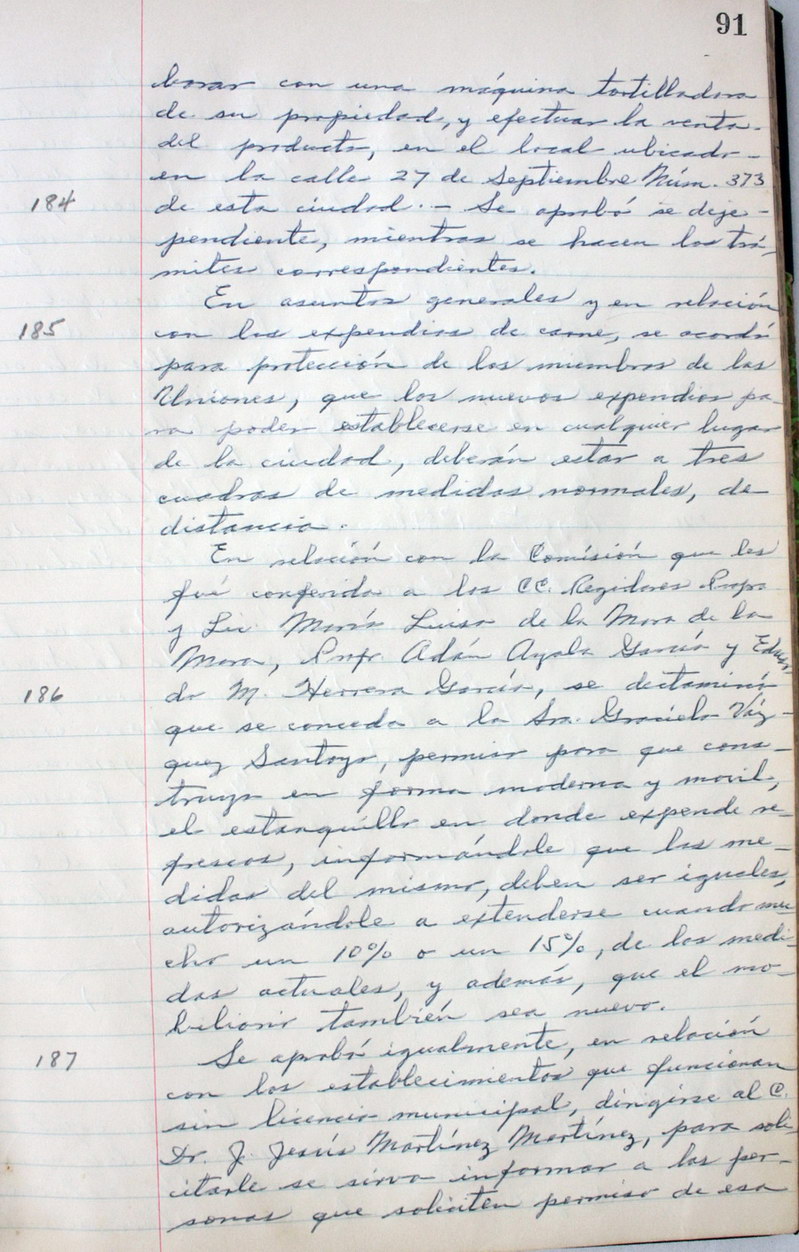 91
borar con una máquina tortilladora
de su propiedad, y efectuar la venta-
del producto, en el local ubicado-
en la calle 27 de Septiembre Núm. 373
184 de esta ciudad.- Se aprobó se deje-
pendiente, mientras se hacen los trá-
mites correspondientes.
En asuntos generales y en relación
185 con los expendios de carne, se acordó
para protección de los miembros de las
Uniones, que los nuevos expendios pa-
ra poder establecerse en cualquier lugar
de la ciudad, deberán estar a tres
cuadras de medidas normales, de
distancia.
En relación con la Comisión que les
fué conferida a los CC. Regidores Profra
y Lic. María Luisa de la Mora de la
Mora, Profr. Adán Ayala García y Eduar
186 do M. Herrera García, se dictaminó
que se conceda a la Sra. Graciela Váz-
quez Santoyo, permiso para que cons-
truya en forma moderna y movil,
el estanquillo en donde expende re-
frescos, informándole que las me-
didas del mismo, deben ser iguales,
autorizándole a extenderse cuando mu-
cho un 10% o un 15%, de las medi-
das actuales, y además, que el mo-
biliario también sea nuevo.
187 Se aprobó igualmente, en relación
con los establecimientos que funcionan
sin licencia municipal, dirigirse al C.
Dr. J. Jesús Martínez Martínez, para soli-
citarle se sirva informar a las per-
sonas que soliciten permiso de esa